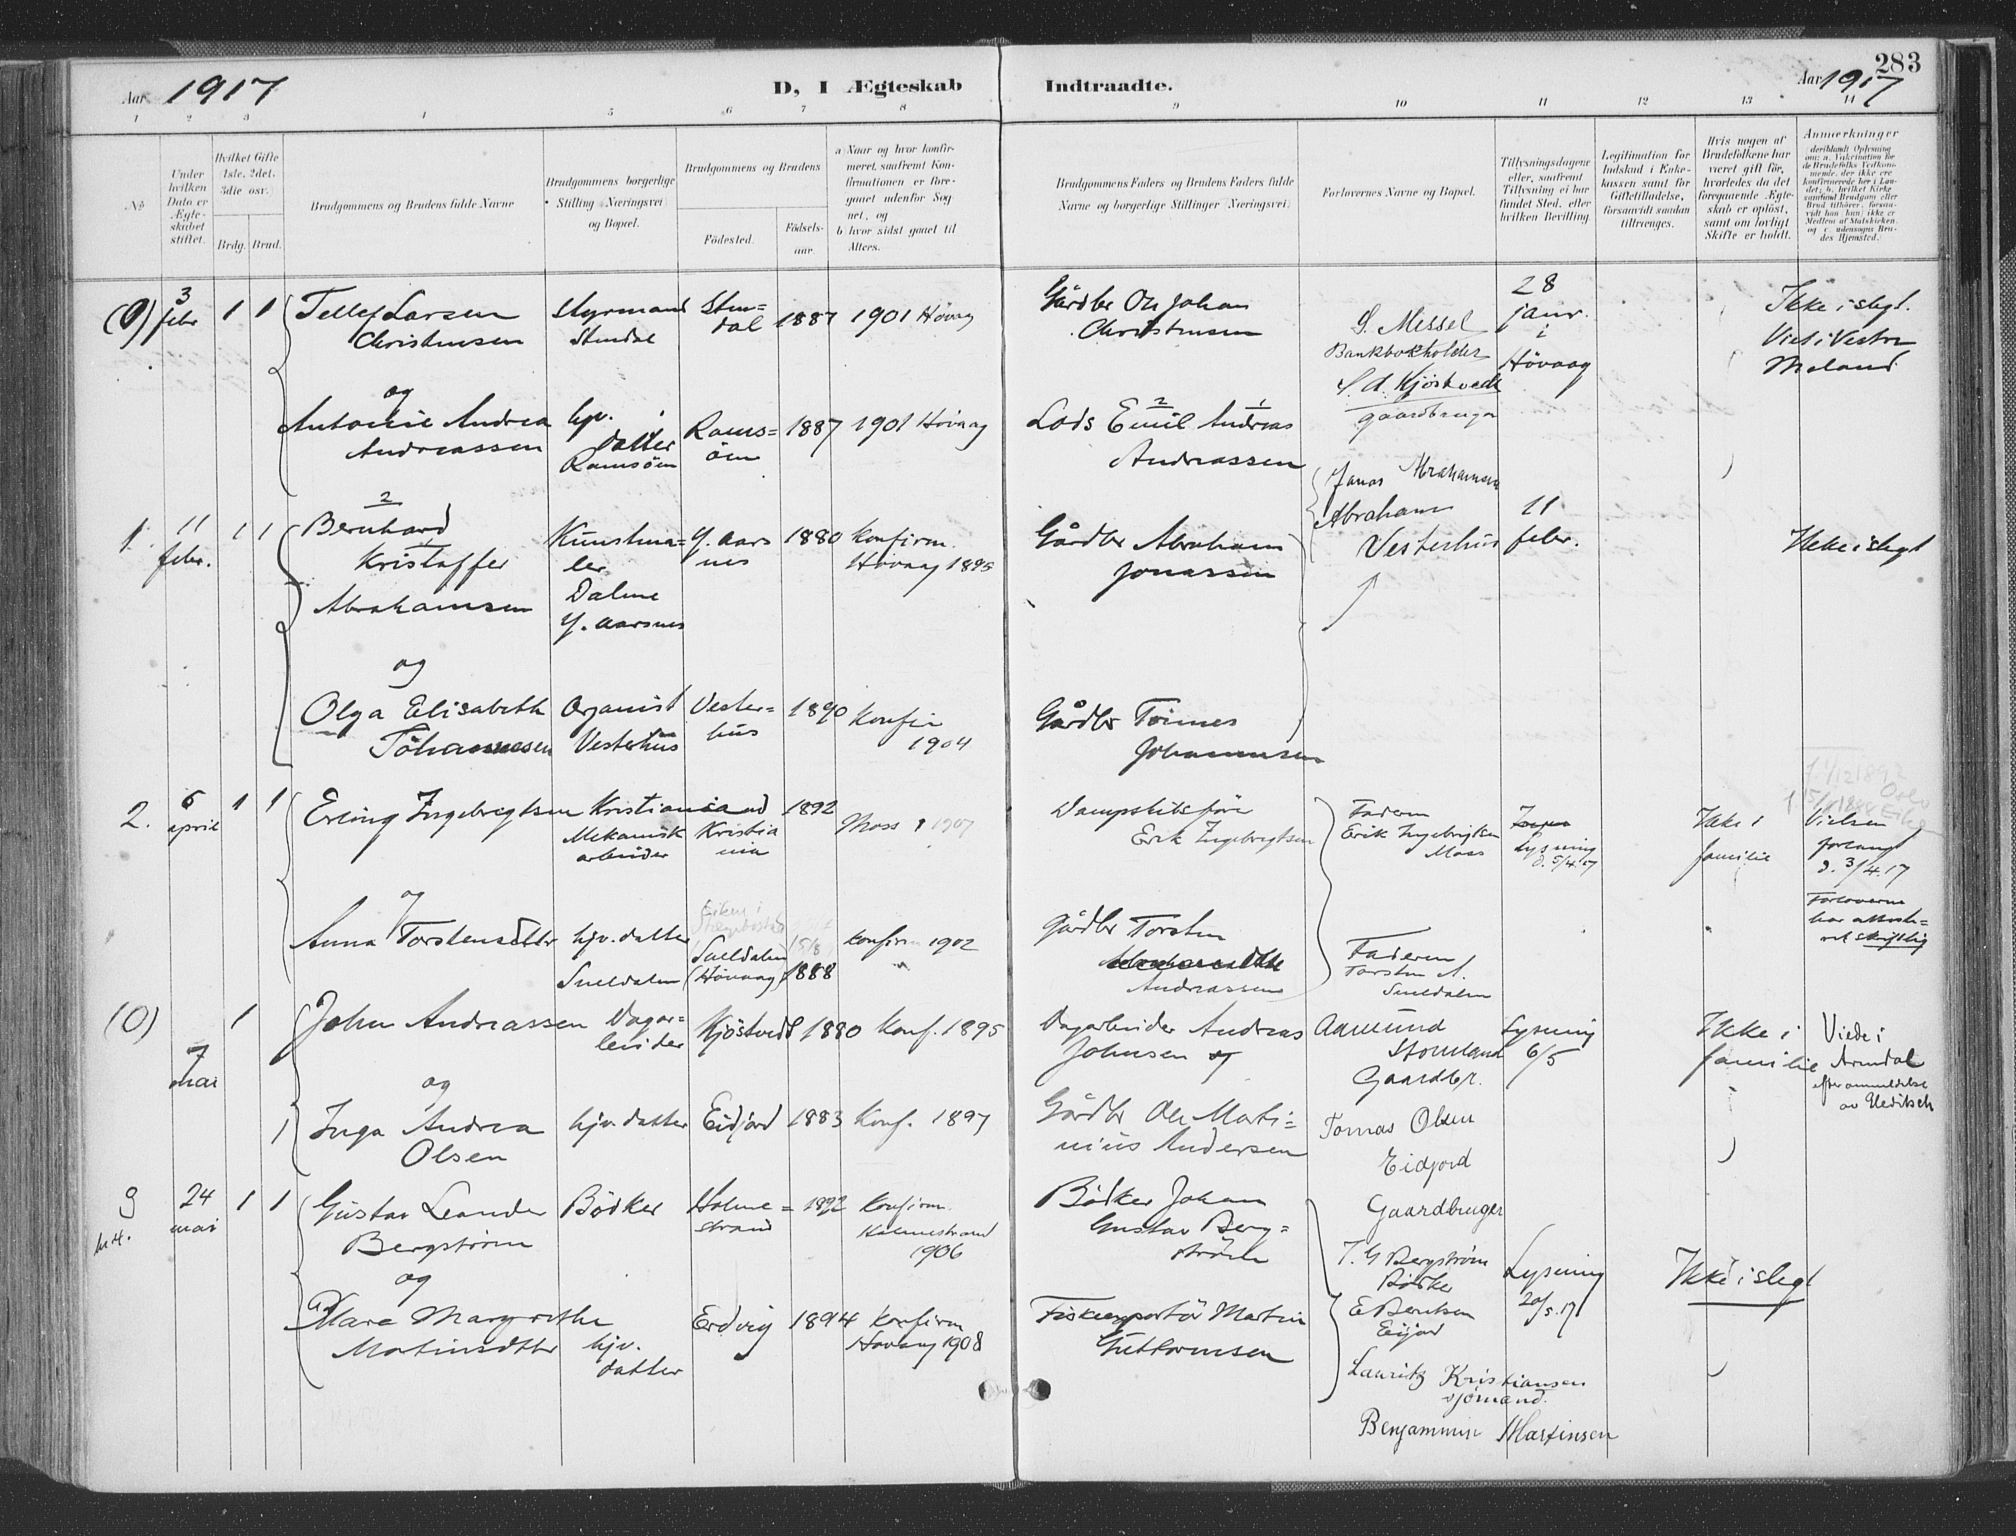 283
Aar 1917
D, I Ægteskab Indtraadte.
Aar 1917
1 2 3 4 5 6 7 8 9 10 11 12 13 14
No
Under hvilken Dato er Ægteskabet stiftet.
Hvilket Gifte 1ste, 2det, 3die osv.
Brdg. Brud.
Brudgommens og Brudens fulde Navne
Brudgommens borgerlige Stilling (Næringsvei) og Bopæl.
Brudgommens og Brudens
Fødested.
Fødselsaar.
a Naar og hvor konfirmeret, saafremt Konfirmationen er foregaaet udenfor Sognet, og
b hvor sidst gaaet til Alters.
Brudgommens Faders og Brudens Faders fulde Navne og borgerlige Stillinger (Næringsvei)
Forlovernes Navne og Bopæl.
Tillysningsdagene eller, saafremt Tillysning ei har fundet Sted, efter hvilken Bevilling
Legitimation for Indskud i Enkekassen samt for Giftetilladelse, forsaavidt saadan tiltrænges.
Hvis nogen af Brudefolkene har været gift før, hvorledes da det foregaaende Ægteskab er opløst, samt om lovligt Skifte er holdt.
Anmærkninger
(0) 3 febr 1 1
Tellef Larsen
Christensen
Styrmand
Stendal
Stendal
1887
1901 Høvag
Gårdbr Ole Johan
Christensen
S. Messel
Bankbokholder
S. A. Kjöstvedt
gaardbruger
28
janr.
i
Høvaag
Ikke i slegt.
Viet i Vestre
Moland
og
Antonie Andrea
Andreassen
hjv.
datter
Ramsöen
Ramsöen
1887
1901 Høvaag
2 1
Lods Emil Andreas
Andreassen
1. 11 febr. 1 1
2
Bernhard
Kristoffer
Abrahamsen
Kunstmaler
Dalene
Y. Aarsnes
Y. Aarsnes
1880
Konfirm.
Høvaag 1895
Gårdbr Abraham
Jonassen
Jonas Abrahamsen
Abraham
Vesterhus
11
febr.
Ikke i slegt
og
Olga Elisabeth
Töhannesen
Organist
Vesterhus
Vesterhus
1890
Konfir
1904
Gårdbr Tönnes
Johannesen
2. 6 april 1 1
Erling Ingebregtsen
Kristiansand
Mekanisk
arbeider
Kristiania
1892
Moss 1907
Dampskibsfører
Erik Ingebregtsen
Faderen
Erik Ingebrigtsen
Moss
Lysning
d. 5/4.17
Ikke i
familie
Vielsen
forlangt
d. 3/4.17
Forloverne
har attesteret skriftlig
og
Anna Torstensdtr
hjv. datter
Sneldalen
Eiken i
Sneldalen
(Høvaag)
15/8
1888
konfirm 1902
Gårdbr Torsten
Andreassen
Faderen
Torsten A.
Sneldalen
(0) 7 mai 1
John Andreassen
Dagarbeider
Kjöstvedt
1880
Konf. 1895
Dagarbeider Andreas
Johnsen og
Aamund
Stomland
Gaardbr.
Lysning
6/5
Ikke i
familie
Viede i
Arendal
efter anmeldelse
av Gleditsch
og
1
Inga Andrea
Olsen
hjv. datter
Eidjord
1883
Konf. 1897
Gårdbr Ole Martinius Andersen
Tomas Olsen
Eidjord
Gaardbruger
3 24 mai 1 1
Gustav Leander
Bergström
Bödker
Holmestrand
1892
Konfirm.
Holmestrand
1906
Bödker Johan
Gustav Bergström
J. G Bergström
Bödker
Lysning
20/5.17
Ikke i slegt
og
Klara Margrethe
Martinsdtr
hjv.
datter
Erdvig
1894
Konfirm
Høvaag 1908
Fiskeexportör Martin
Guttormsen
E Berntsen
Eijord
Lauritz Kristiansen
sjömand.
Benjammin Martinsen